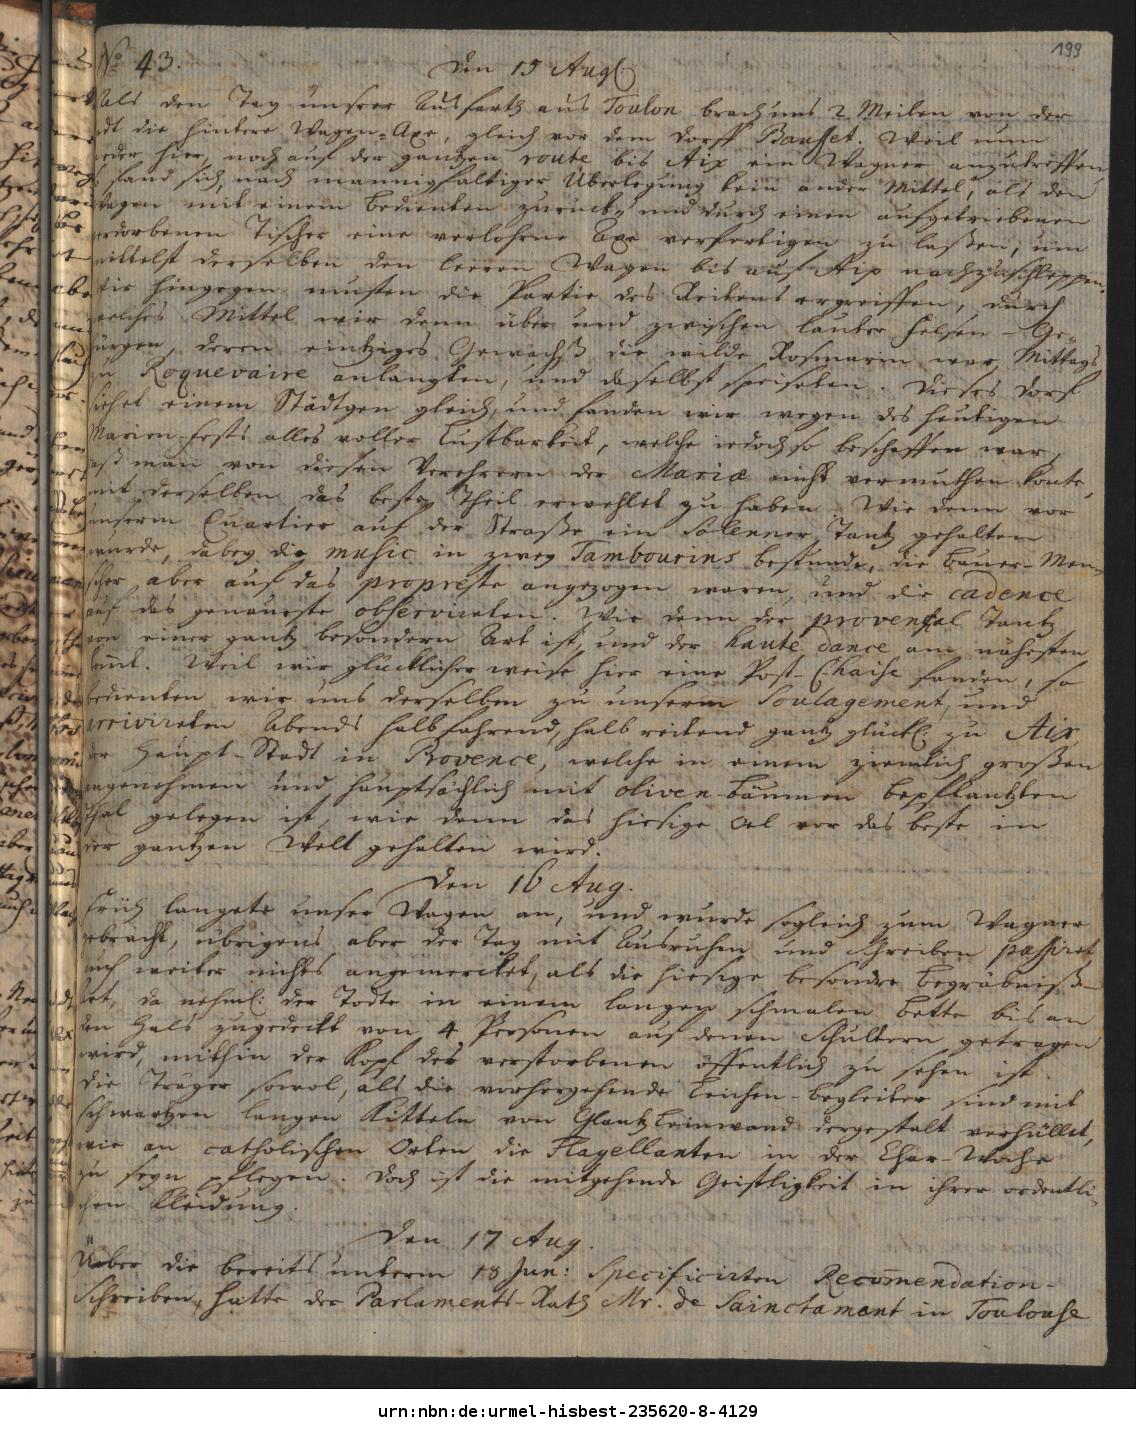 199
No 43.
Den 15 Aug.
Als den Tag unsrer Ausfarth aus Toulon brach uns 2 Meilen von der
die hintere Wagen-Axe, gleich vor dem Dorff Bausset. Weil nun
weder hier, noch auf der gantzen route bis Aix ein Wagner anzutreffen,
fand sich nach mannigfaltiger Überlegung kein ander Mittel, als den
Wagen mit einem Bedienten zurück und durch einen aufgetriebenen
verdorbenen Tischer eine verlohrne Axe verfertigen zu laßen, um
mittelst derselben den leeren Wagen bis auf Aix nachzuschleppen.
Wir hingegen musten die Partie des Reitens ergreiffen, durch
welches Mittel wir denn über und zwischen lauter Felsen-Ge-
bürgen, deren eintziges Gewächß die wilde Rosmarin war, Mittags
zu Roquevaire anlangten, und daselbst speiseten. Dieses Dorf
siehet einem Städtgen gleich, und fanden wir wegen des heutigen
Marien-fests alles voller Lustbarkeit, welche iedoch so beschaffen war,
daß man von diesen Verehrern der Mariæ nicht vermuthen konte,
mit derselben das beste Theil erwehlet zu haben. Wie denn vor
unserm Quartier auf der Straße ein solenner Tantz gehalten
wurde, dabey die music in zwey Tambourins bestunde, die Bauer-Men-
scher aber auf das propreste angezogen waren, und die cadence
auf das genaueste observireten. Wie denn der provençal Tantz
von einer gantz besondern Art ist, und der haute dance am nähesten
kommt. Weil wir glücklicher weise hier eine Post-Chaise fanden, so
bedienten wir uns derselben zu unserm Soulagement, und
arrivireten Abends halb fahrend, halb reitend gantz glückl. zu Aix,
der Haupt-Stadt in Provence, welche in einem ziemlich großen
angenehmen und hauptsächlich mit oliven-bäumen bepflantzten
Thal gelegen ist, wie denn das hiesige Oel vor das beste in
der gantzen Welt gehalten wird.
Den 16 Aug.
Früh langete unser Wagen an, und wurde sogleich zum Wagner
gebracht, übrigens aber der Tag mit Ausruhen und Schreiben passiret
auch weiter nichts angemercket, als die hiesige besondre Begräbniß-
Art, da nehml. der Todte in einem langen schmalen Bette bis an
den Hals zugedeckt von 4 Personen auf denen Schultern getragen
wird, mithin der Kopf des verstorbenen öffentlich zu sehen ist.
Die Träger sowol, als die vorhergehende Leichen-begleiter sind mit
schwartzen langen Kitteln von Glantz Leinwand dergestalt verhüllet,
wie an catholischen Orten die Flagellanten in der Char-Woche
zu seyn pflegen. Doch ist die mitgehende Geistligkeit in ihrer ordentli-
chen Kleidung.
Den 17 Aug.
Über die bereits unterm 18 Jun: Specificirten Recomendation-
Schreiben, hatte der Parlaments-Rath Mr. de Sainctamant in Toulouse
urn:nbn:de:urmel-hisbest-235620-8-4129